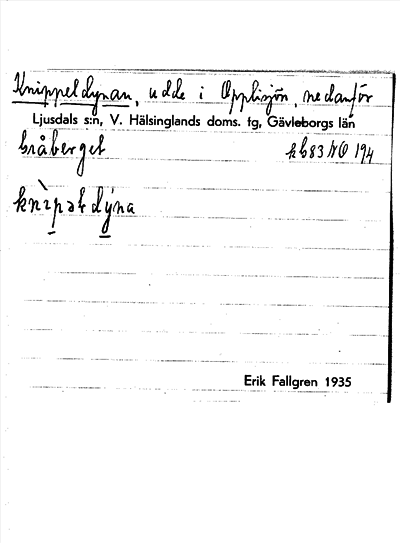 Knippeldynan, udde i Opplisjön, nedanför
Ljusdals s:n, V. Hälsinglands doms. fg, Gävleborgs län
bråberget kb83NO 194
knìpəldýna
Erik Fallgren 1935